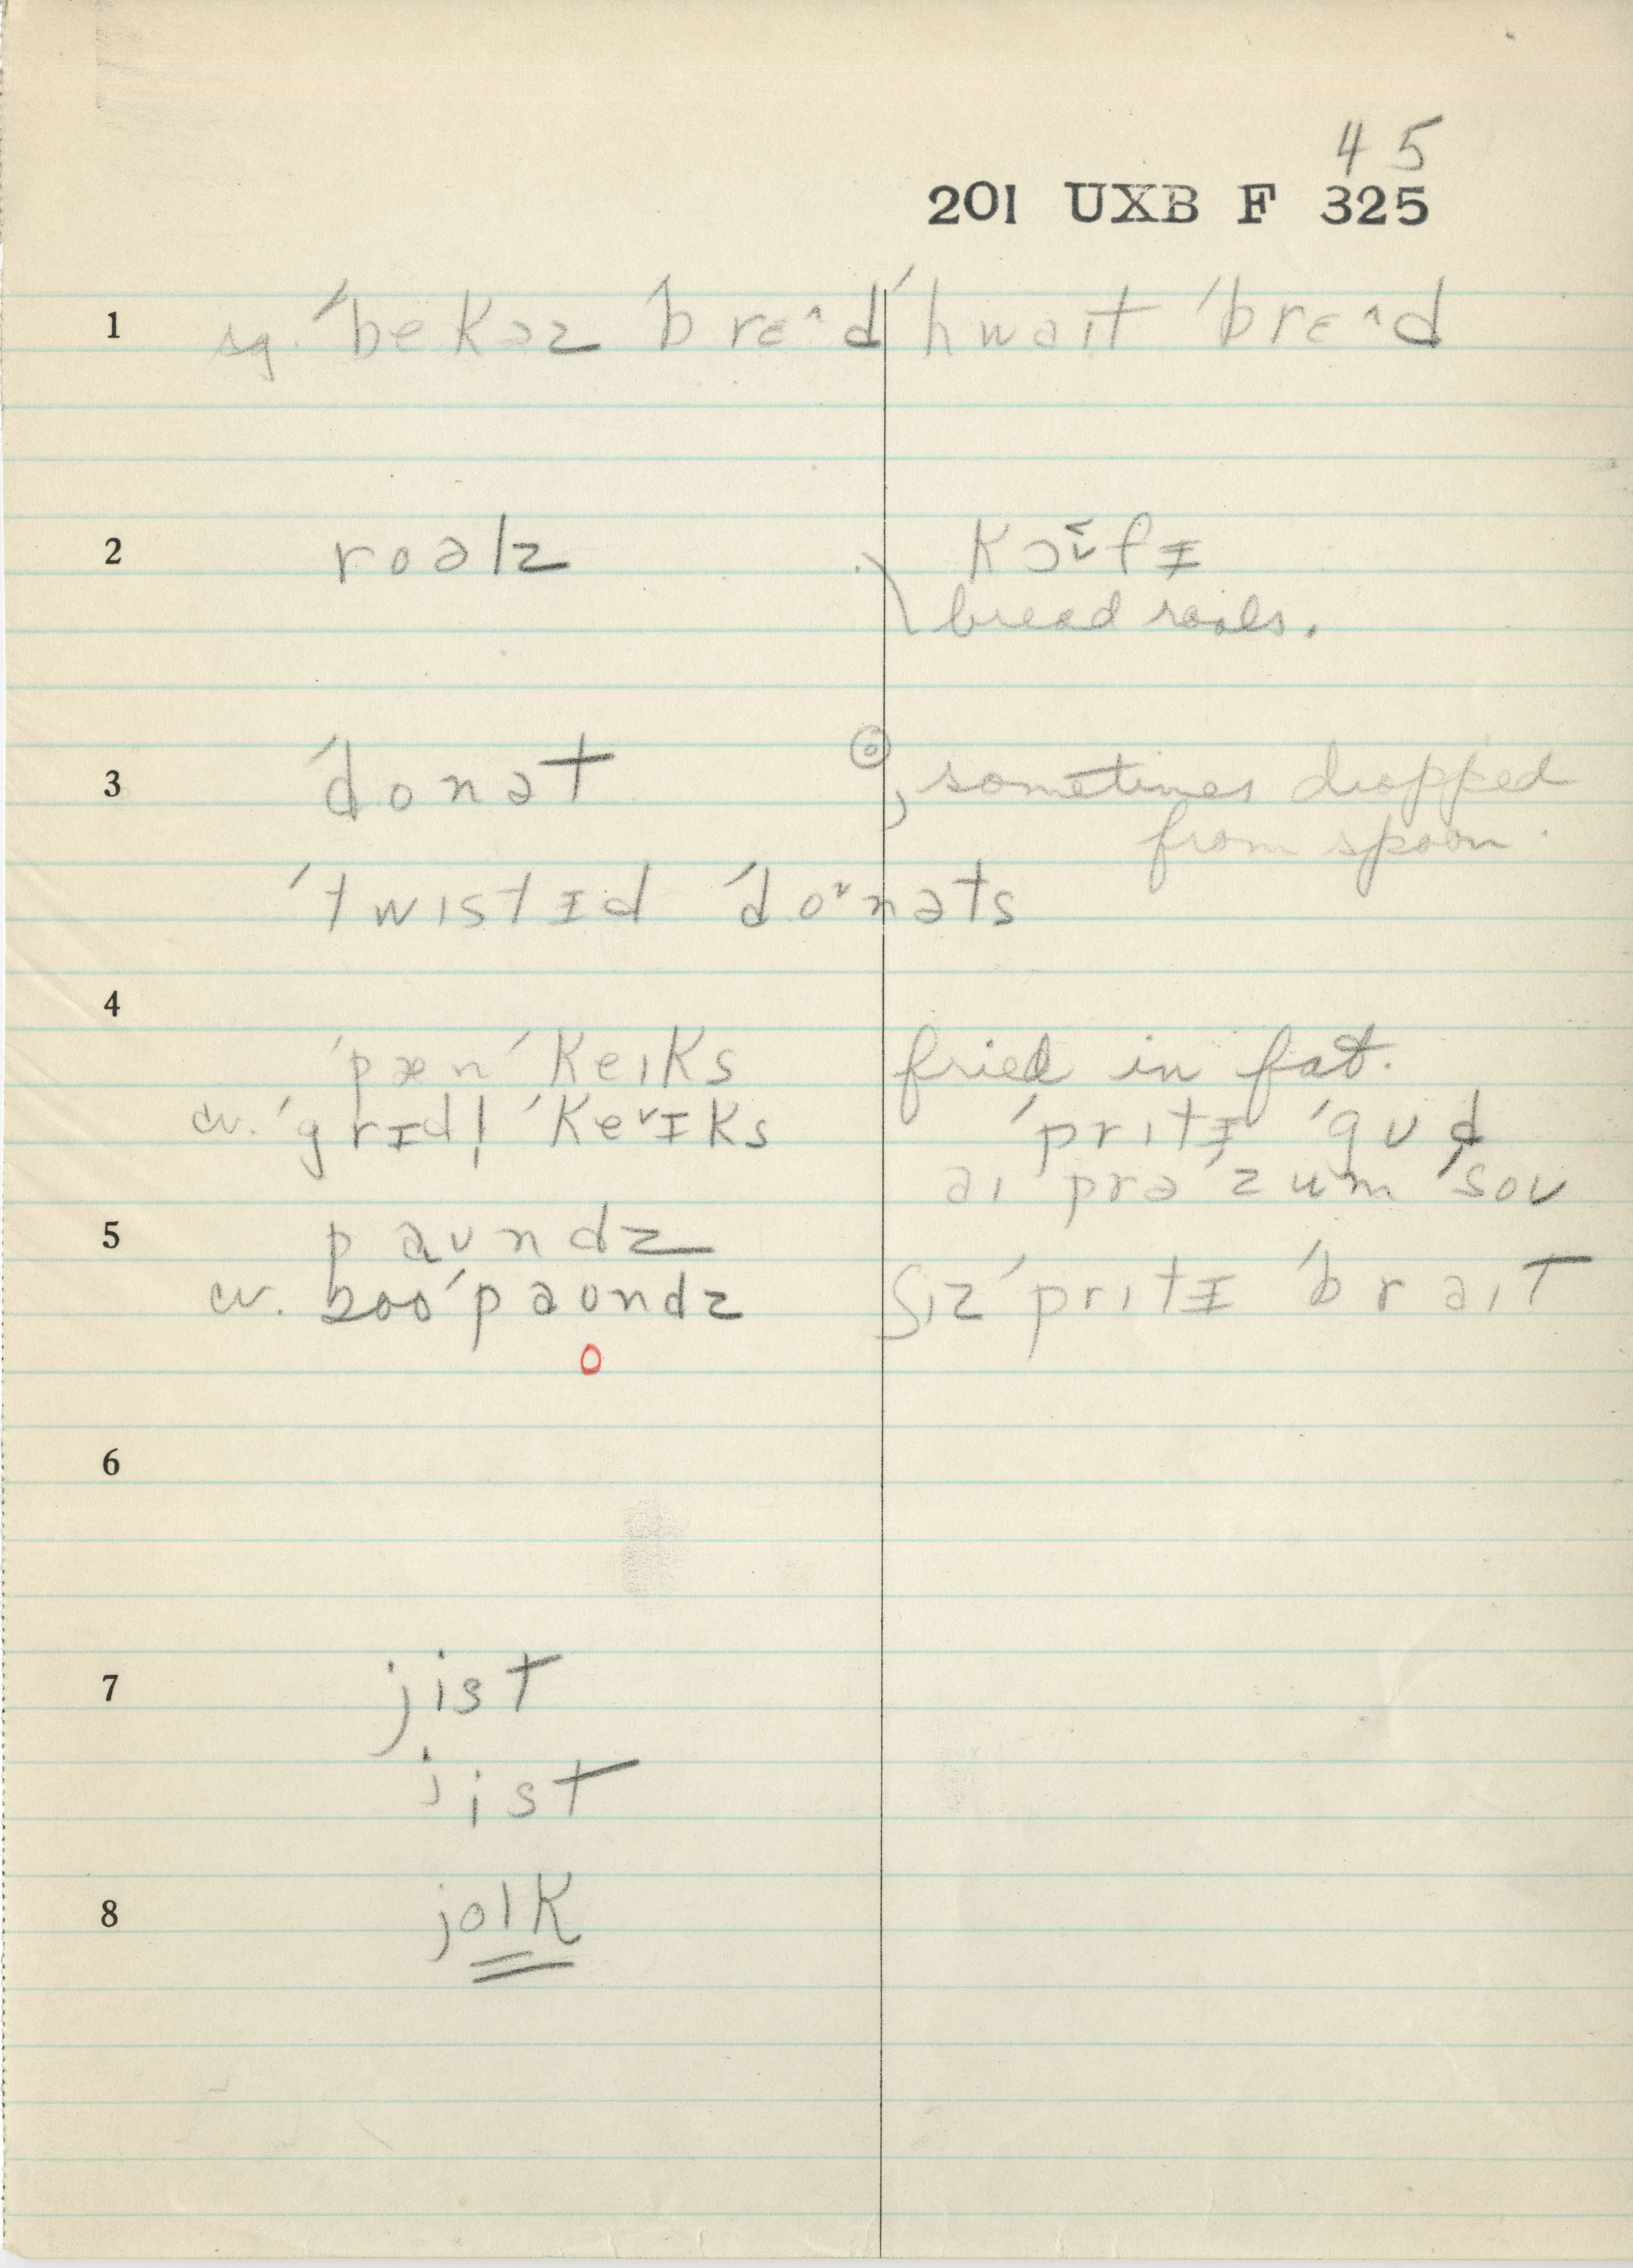 45
201 UXB F 325
1 sg. ˈbekəz ˈbrɛ^d ˈhwaɪt ˈbrɛ^d
2 roəlz kɔfɪ
bread rools.
3 ˈdonət , sometimes dropped
from spoon.
ˈtwɪstɪd ˈdoˇnəts
4
ˈpæn ˈkeɪks fried in fat.
cv. ˈgrɪdl̩ ˈkeˇɪks ˈprɪtɪ ˈgʊd
aɪ prəˈzum ˈsoʊ
5 paʊndz
cv. boo ˈpaʊndz ʃɪz ˈprɪtɪ ˈbraɪt
o
6
7 jist
jist
8 jolk